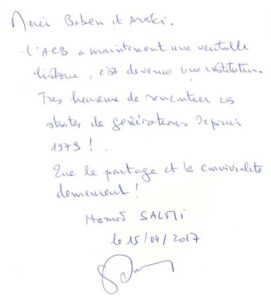 Merci Beben et Arski.
L'ACB a maintenant une veritable
histoire, c'est devenu une institution.
Tres heureux de rencontrer ces
strates de générations depuis
1979 !
Que le partage et la convivialité
demeurent !
Hamid SALMI
le 15/04/2017